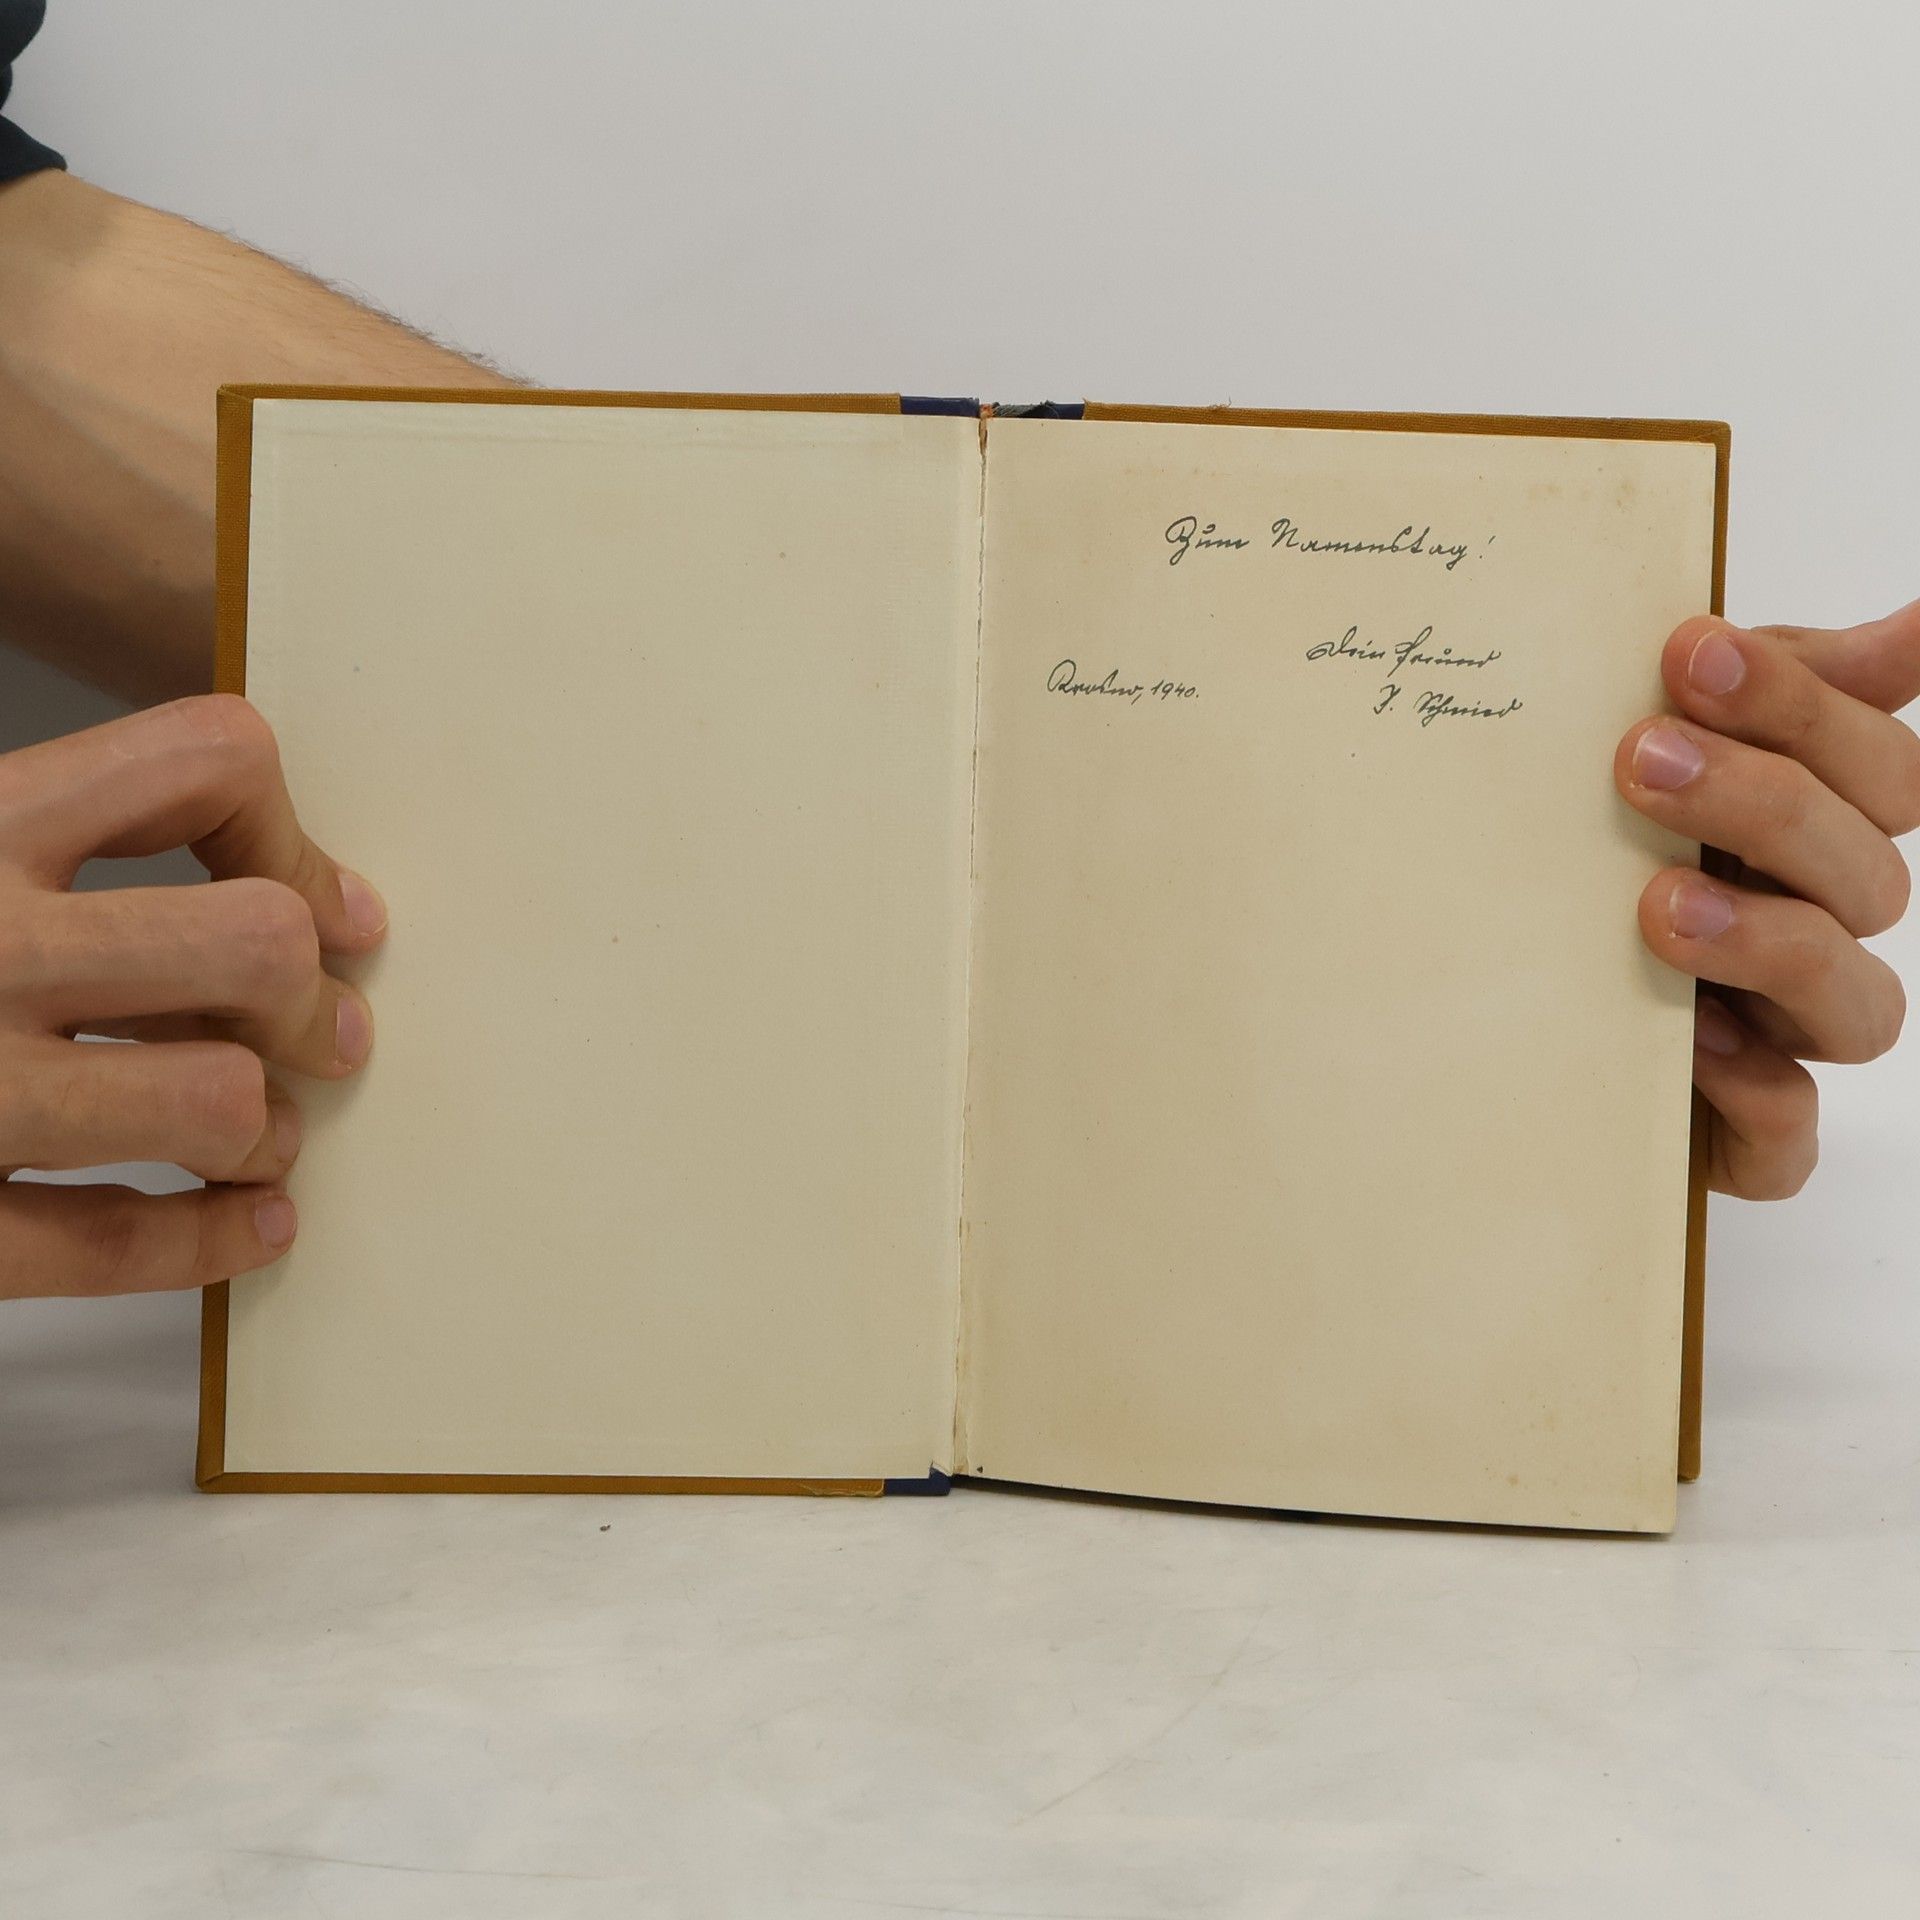 Zum Namenstag!
Dein Freund
Krosno, 1940.
J. Schmied